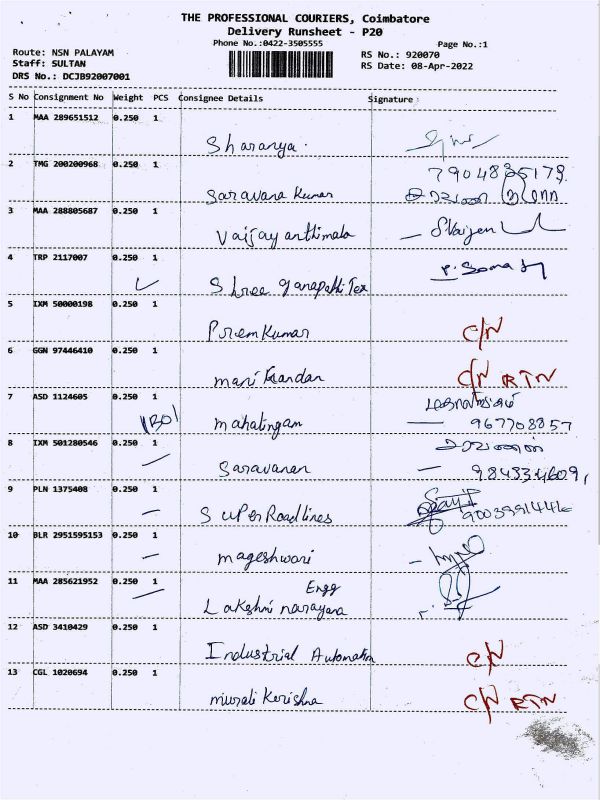 THE PROFESSIONAL COURIERS, Coimbatore
Delivery Runsheet - P20
Phone No.:0422-3505555
Page No.:1
Route: NSN PALAYAM
RS No.: 920070
Staff: SULTAN
RS Date: 08-Apr-2022
DRS No.: DCJB92007001
S No Consignment No Weight PCS Consignee Details Signature :
1 MAA 289651512 0.250 1
Sharanya.
2 TMG 200200968 0.250 1
Saravana Kumar
3 MAA 288805687 0.250 1
Vaijayanthimala
4 TRP 2117007 0.250 1
Shree ganapathi Tex
5 IXM 50000198 0.250 1
Prem Kumar C/N
6 GGN 97446410 0.250 1
mani kandan C/N RTN
7 ASD 1124605 0.250 1
mahalingam
8 IXM 501280546 0.250 1
சரவணன்
Saravanan
9 PLN 1375408 0.250 1
Super Roadlines
10 BLR 2951595153 0.250 1
mageshwari
11 MAA 285621952 0.250 1
Engg
Lakshmi narayana
12 ASD 3410429 0.250 1
Industrial Automation C/N
13 CGL 1020694 0.250 1
murali Kerishna C/N RTN